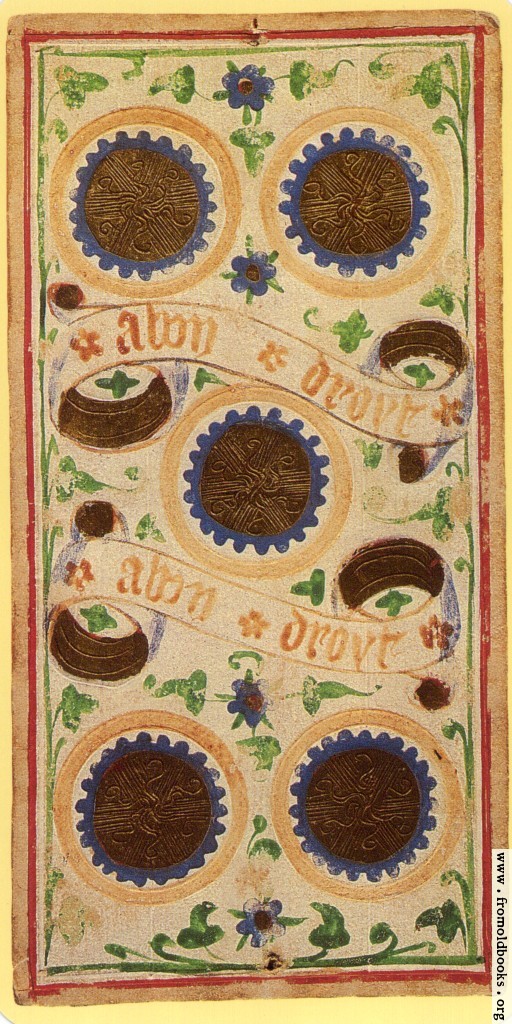 a bon droyt
a bon droyt
www.fromoldbooks.org